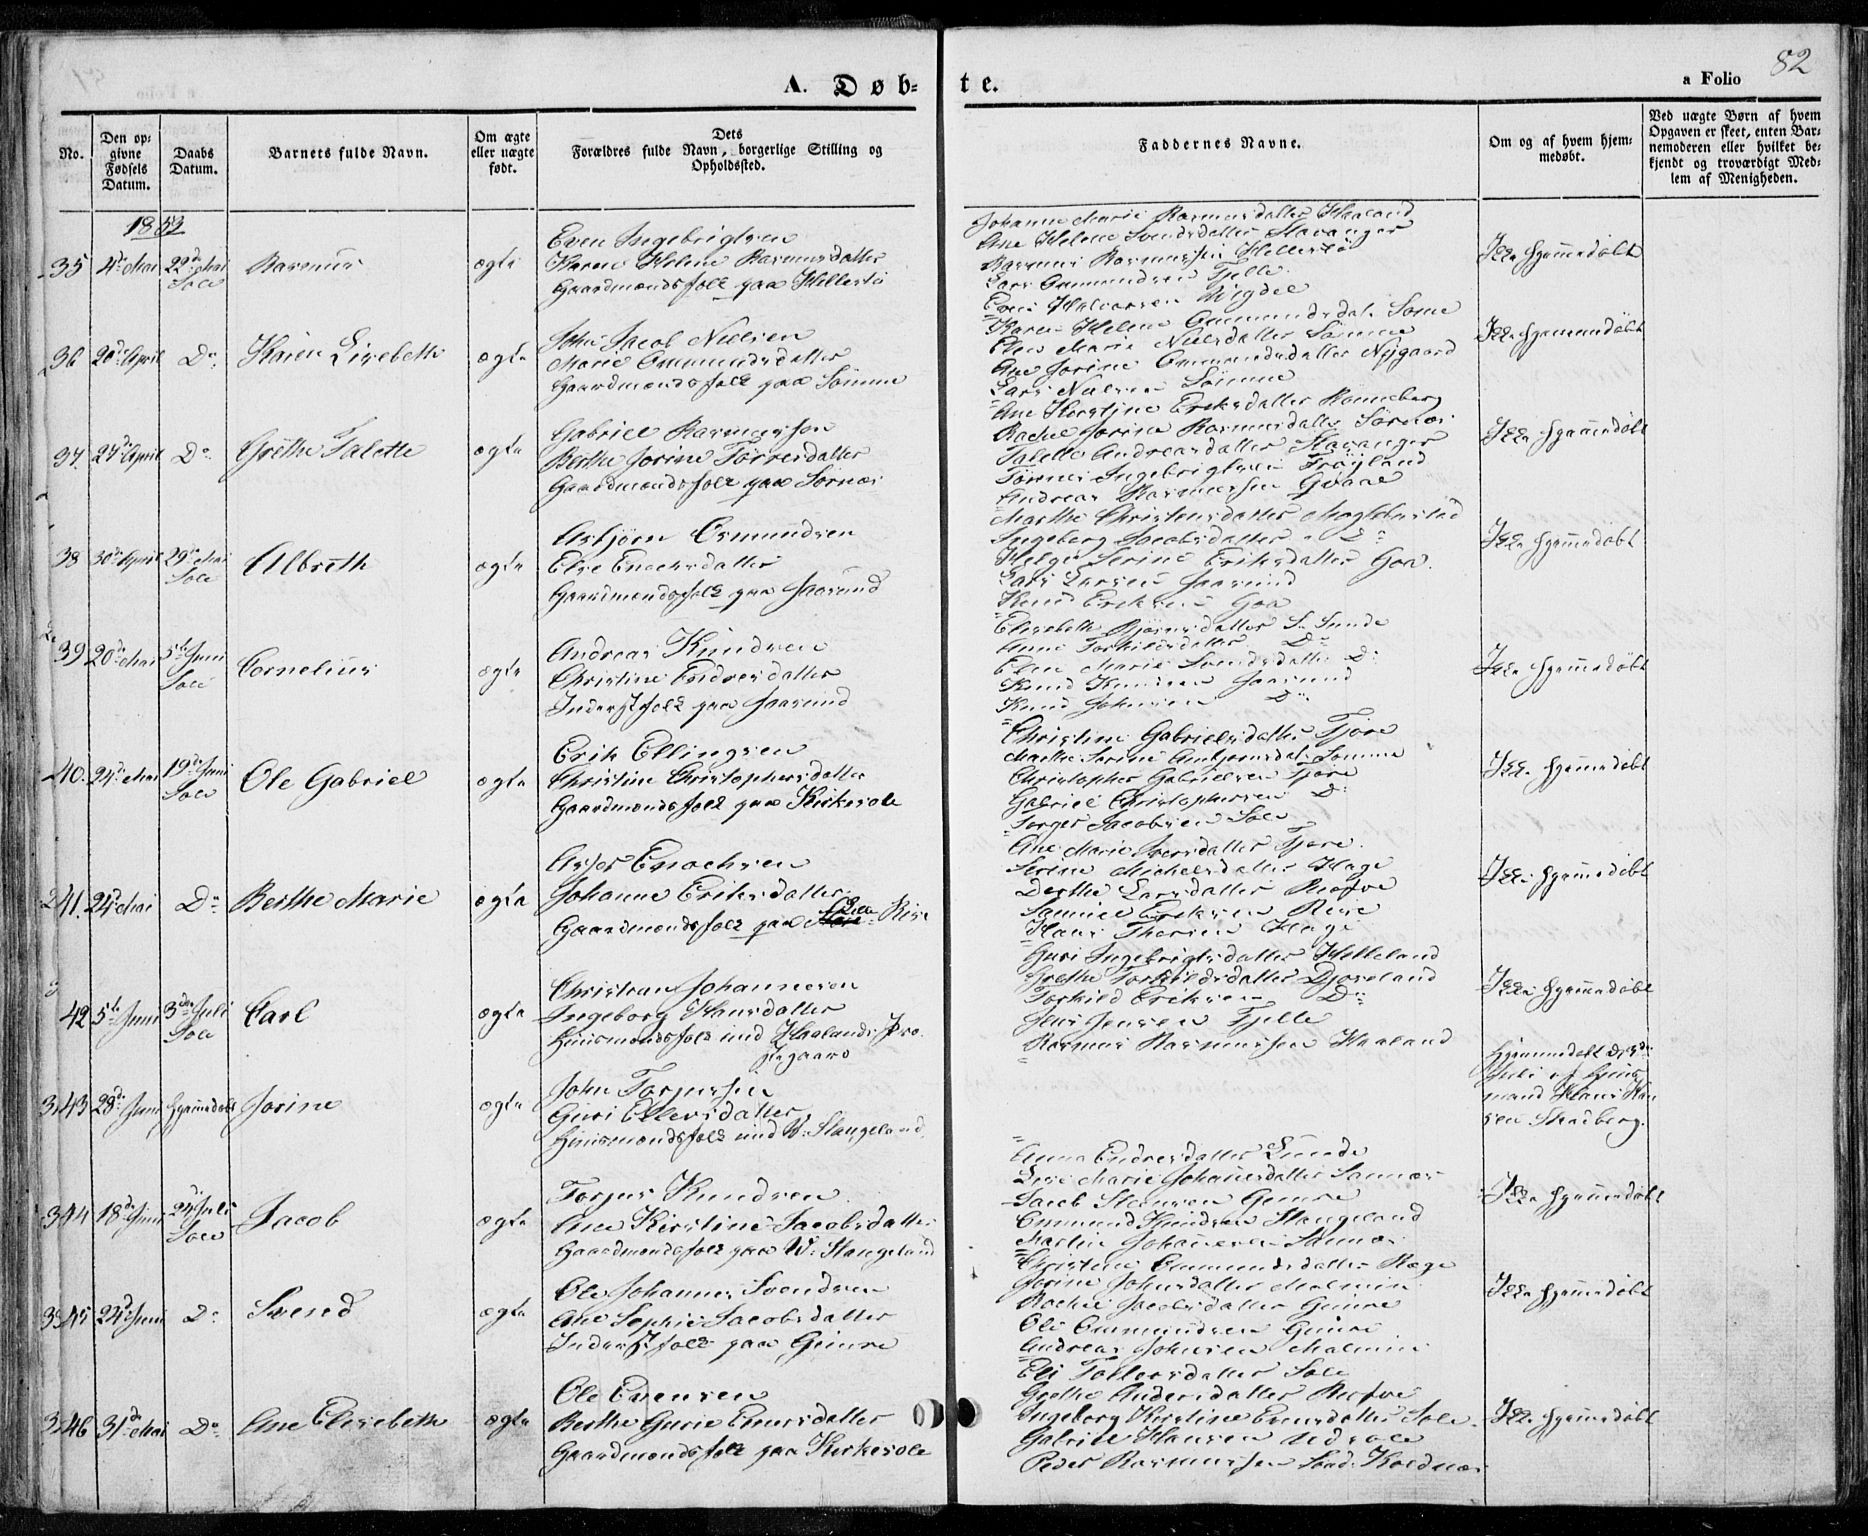 82
A. Døb=
te.
a Folio
No.
Den op=
givne
Fødsels
Datum.
Daabs
Datum.
Barnets fulde Navn.
Om ægte
eller uægte
født.
Dets
Forældres fulde Navn, borgerlige Stilling og
Opholdssted.
Faddernes Navne.
Om og af hvem hjem=
medøbt.
Ved uægte Børn af hvem
Opgaven er skeet, enten Bar=
nemoderen eller hvilket be=
kjendt og troværdigt Med=
lem af Menigheden.
1853
35 4de Mai 22de Mai Sole Rasmus ægte
Even Ingebrigtsen
Karen Helene Rasmusdatter
Gaardmandsfolk paa Hellestø
Johanne Marie Rasmusdatter Haaland
Ane Helene Svendsdatter Stavanger
Rasmus Rasmussen Hellestø
Lars Ommundsen Fjelle
Even Halvorsen Vigdel
Ikke hjemmedøbt
36 20de April Do Karen Lisebeth ægte
John Jacob Nielsen
Marie Ommundsdatter
Gaardmandsfolk paa Sømme
Karen Helene Ommundsdat. Somme
Elen Marie Nielsdatter Sömme
Ane Jorine Ommundsdatter Nygaard
Lars Nielsen Sömme
Ikke hjemmedøbt
37. 24de April Do Grethe Talette ægte
Gabriel Rasmussen
Berthe Jorine Tørresdatter
Gaardmandsfolk paa Sørnæs
Ane Kirstine Eriksdatter Rønneberg
Rachel Jorine Rasmusdatter Sørnæs
Talette Andreasdatter Stavanger
Tønnes Ingebrigtsen Frøyland
Andreas Rasmussen Gvaale
Ikke hjemmedøbt
38 30de April 29de Mai Sole Albreth ægte
Asbjørn Osmundsen
Else Enochsdatter
Gaardmandsfolk paa Jaasund
Marthe Christensdatter Maglebustad
Ingeborg Jacobsdatter Do
Helge Serine Eriksdatter Goa.
Lars Larsen Jaasund
Knud Eriksen Goa
Ikke hjemmedøbt
39 20de Mai 5te Juni Sole Cornelius ægte
Andreas Knudsen
Christine Endresdatter
Inderstfolk paa Jaasund
Elisebeth Bjørnsdatter S. Sunde
Anne Torkildsdatter Do
Elen Marie Svendsdatter Do
Knud Knudsen Jaasund
Knud Johnsen Do
Ikke hjemmedøbt
40. 24de Mai 19de Juni Sole Ole Gabriel ægte
Erik Ellingsen
Christine Christophersdatter
Gaardmandsfolk paa Kirkesole
Christine Gabrielsdatter Tjore
Marthe Serine Asbjørnsdat. Sømme
Christopher Gabrielsen Tjore
Gabriel Christophersen Do
Torger Jacobsen Sole
Ikke hjemmedøbt
41. 24de Mai Do Berthe Marie ægte
Asser Enochsen
Johanne Eriksdatter
Gaardmandsfolk paa Lille Rise
Ane Marie Iversdatter Tjore.
Serine Michelsdatter Hage
Dorthe Larsdatter Røyne
Samuel Eriksen Rege
Hans Thorsen Hage
Ikke hjemmedøbt
42 5te Juni 3die Juli Sole Carl ægte
Christian Johannesen
Ingeborg Hansdatter
Huusmandsfolk und. Haalands Præ=
stegaard
Guri Ingebrigtsdatter Helleland
Grethe Torkildsdatter Djoseland
Torkild Eriksen Do
Jens Jensen Fjelle
Rasmus Rasmussen Haaland
Ikke hjemmedøbt
43 28de Juni Hjemmedøbt Jorine ægte
John Torjussen
Guri Ellevsdatter
Huusmandsfolk und V. Stangeland
Hjemmedøbt d. 3die
Juli af Huus
mand Hans Han
sen Skadberg.
44 18de Juni 24de Juli Sole Jacob ægte
Torjus Knudsen
Ane Kirstine Jacobsdatter
Gaardmandsfolk paa V. Stangeland
Anna Endresdatter Lunde
Lise Marie Johannesdatter Sannæs
Jacob Steensen Gimre
Ommund Knudsen Stangeland
Martin Johannesen Sannæs
Ikke hjemmedøbt
45 24de Juni Do Svend ægte
Ole Johannes Svendsen
Ane Sophie Jacobsdatter
Inderstfolk paa Gimre
Christine Ommundsdatter Ræge
Jorine Johnsdatter Malmin
Rachel Jacobsdatter Gimre
Ole Ommundsen Gimre
Andreas Johnsen Malmin
Ikke hjemmedøbt
46 31de Mai Do Ane Elisebeth ægte
Ole Evensen
Berthe Gurie Einersdatter
Gaardmandsfolk paa Kirkesole
Eli Tollevsdatter Sole
Grethe Andersdatter Røyne
Ingeborg Kirstine Evensdatter Sole
Gabriel Hansen Udsole
Peder Rasmussen Sand. Kolnæs
Ikke hjemmedøbt